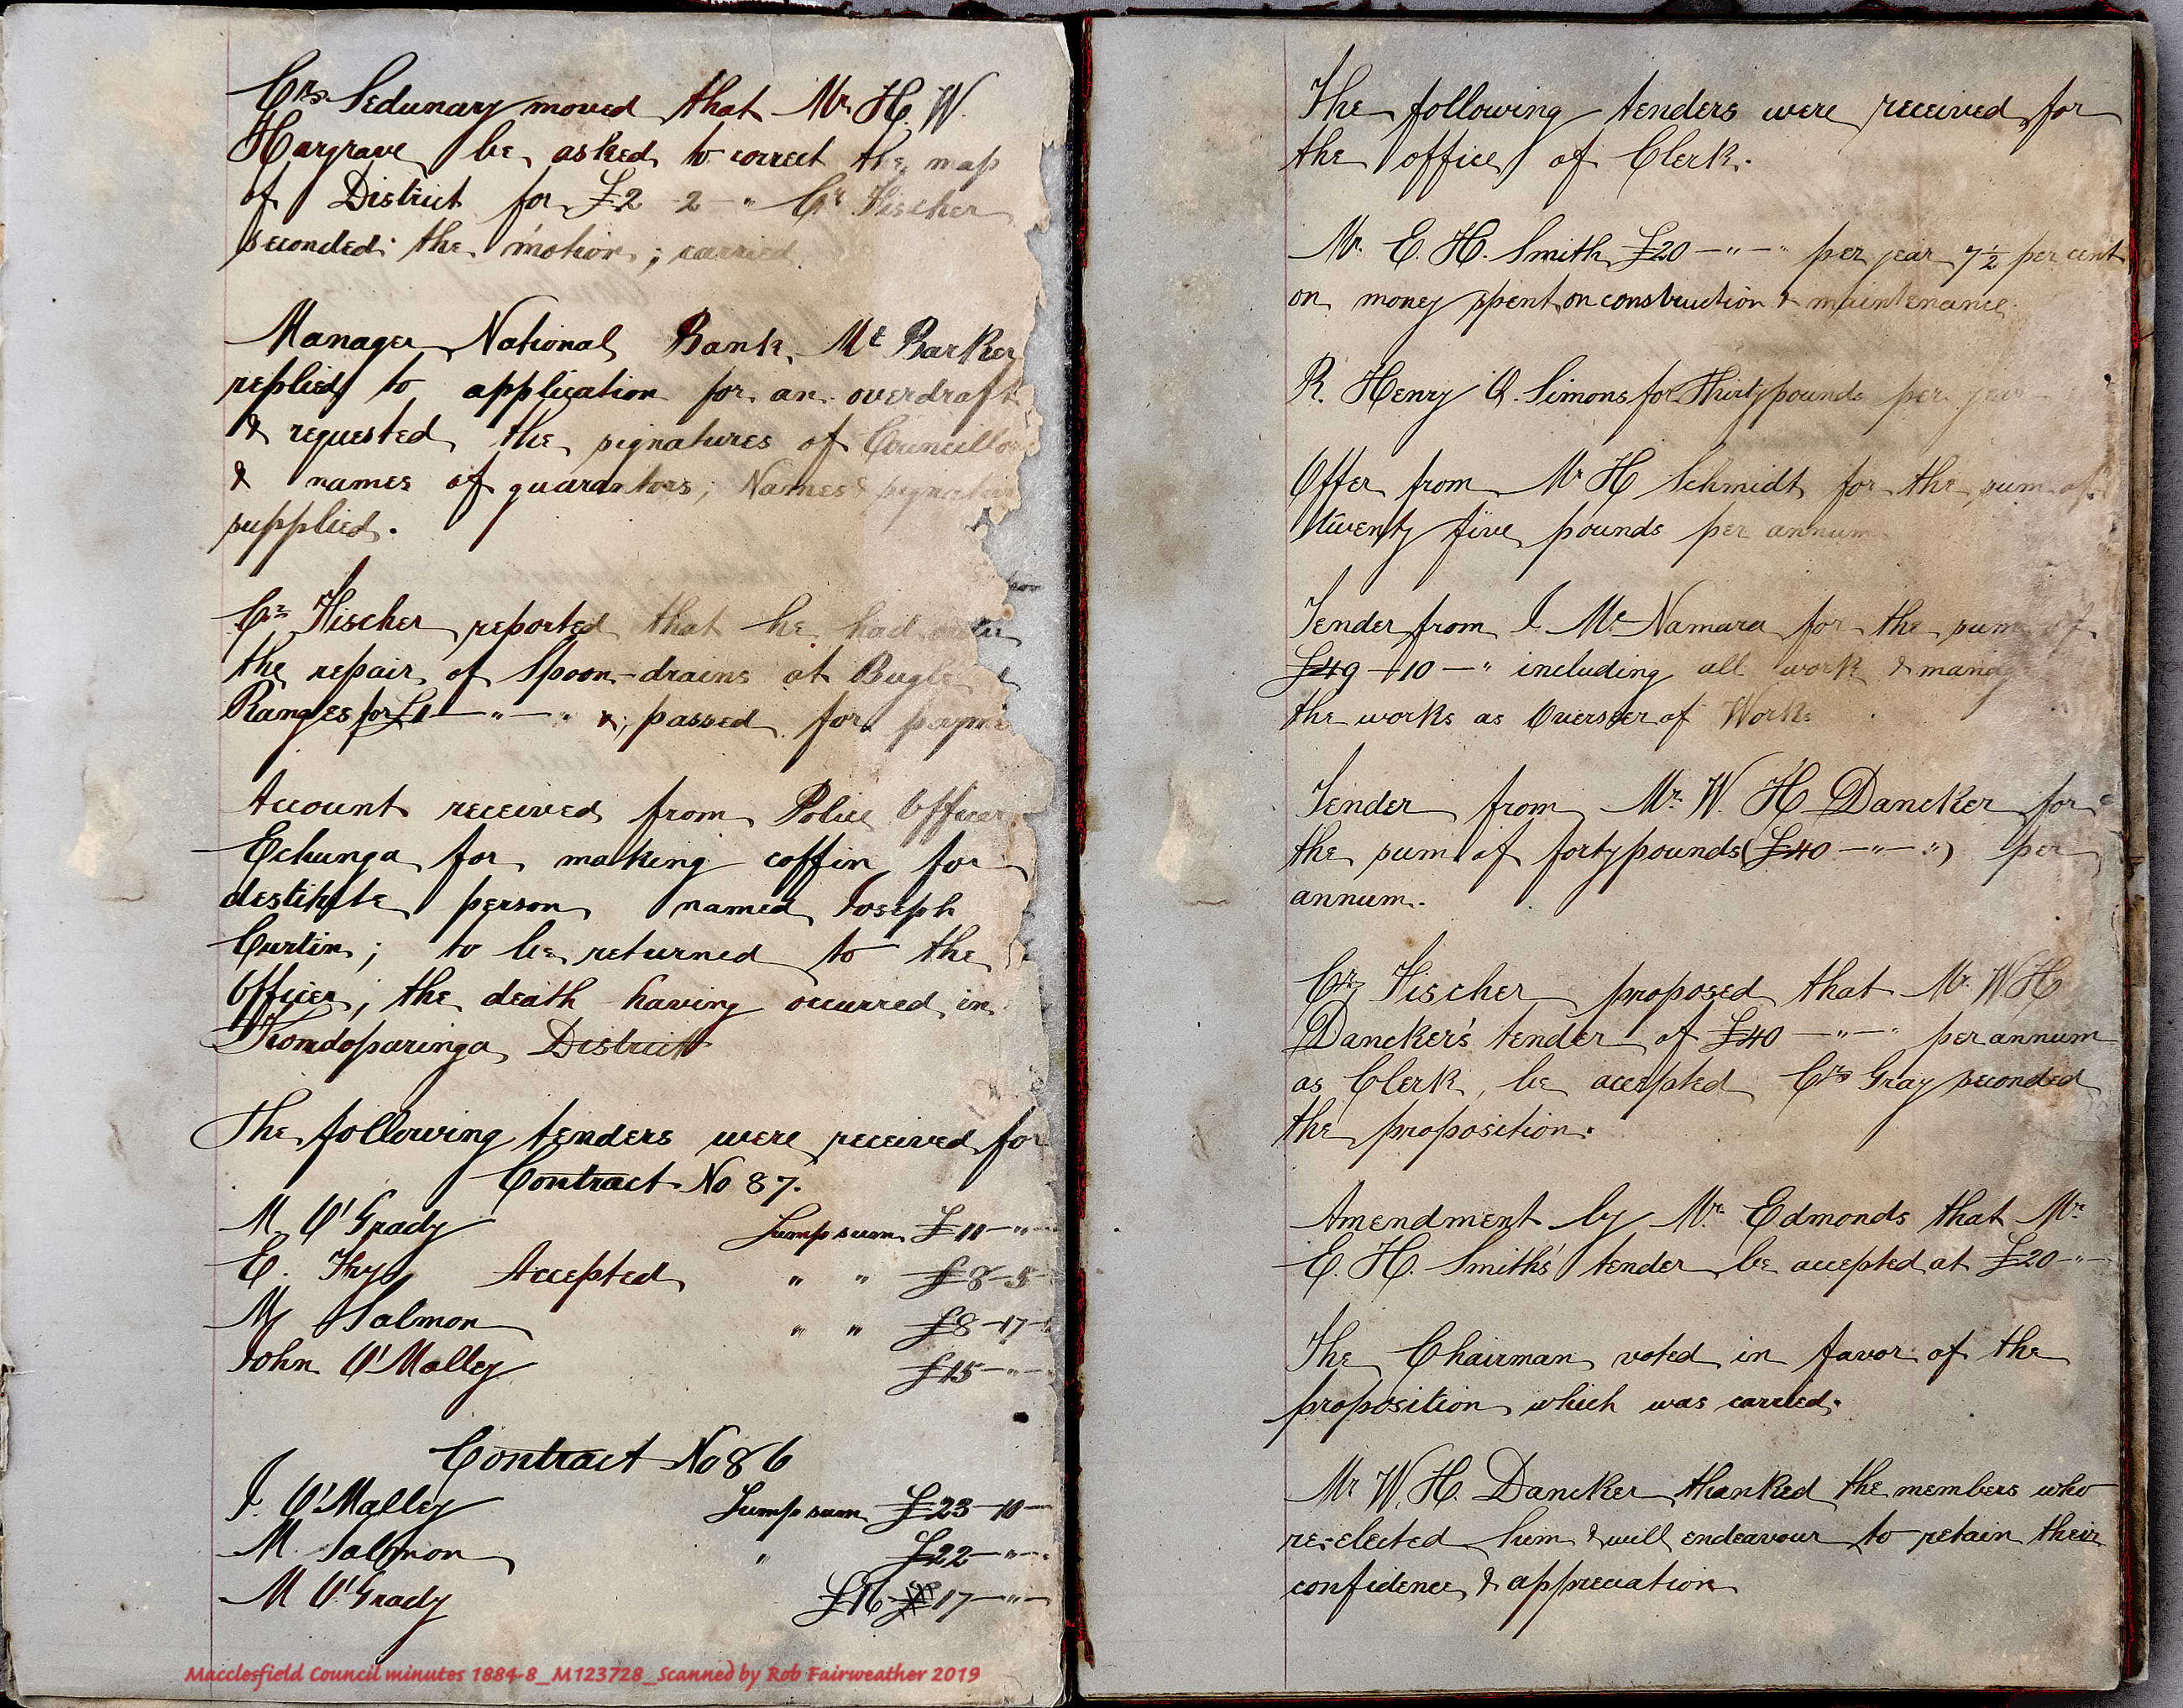 Crs Sedunary moved that Mr H. W.
Hargrave be asked to correct the map
of District for £2 - 2 - " Cr Fischer
seconded the motion; carried.
Manager National Bank, Mt Barker
replied to application for an overdraft
& requested the signatures of Councillors
& names of guarantors; Names & signatures
supplied.
Cr Fischer reported that he had
the repair of Spoon-drains at Bugle
Ranges for £1 - " - " &; passed for
Account received from Police Officer
Echunga for making coffin for
destitute person named Joseph
Curtin; to be returned to the
Officer; the death having occurred in
Kondoparinga District
The following tenders were received for
Contract No 87.
M. O'Grady Lump sum £11 - "
E. Thy Accepted " " £8 - 5
M Salmon " " £8 - 17
John O'Malley £15 - "
Contract No 86
J. O'Malley Lump sum £23 - 10 -
M. Salmon " £22 - "
M O'Grady £16 17 - " -
Macclesfield Council minutes 1884-8_M123728_Scanned by Rob Fairweather 2019
The following tenders were received for
the office of Clerk.
Mr. E. H. Smith £20 - " - " per year 7½ per cent
on money spent on construction & maintenance
R. Henry A. Simons for Thirty pounds per year
Offer from Mr H Schmidt for the sum of
twenty five pounds per annum
Tender from J. McNamara for the sum of
£49 - 10 - " including all work &
the works as Overseer of Works
Tender from Mr. W. H Dancker for
the sum of forty pounds (£40 - " - ") per
annum.
Cr Fischer proposed that Mr. W H
Dancker's tender of £40 - " - " per annum
as Clerk, be accepted Crs Gray seconded
the proposition.
Amendment by Mr. Edmonds that Mr.
E. H. Smith's tender be accepted at £20 - "
The Chairman voted in favor of the
proposition which was carried.
Mr W. H. Dancker thanked the members who
re-elected him & will endeavour to retain their
confidence & appreciation